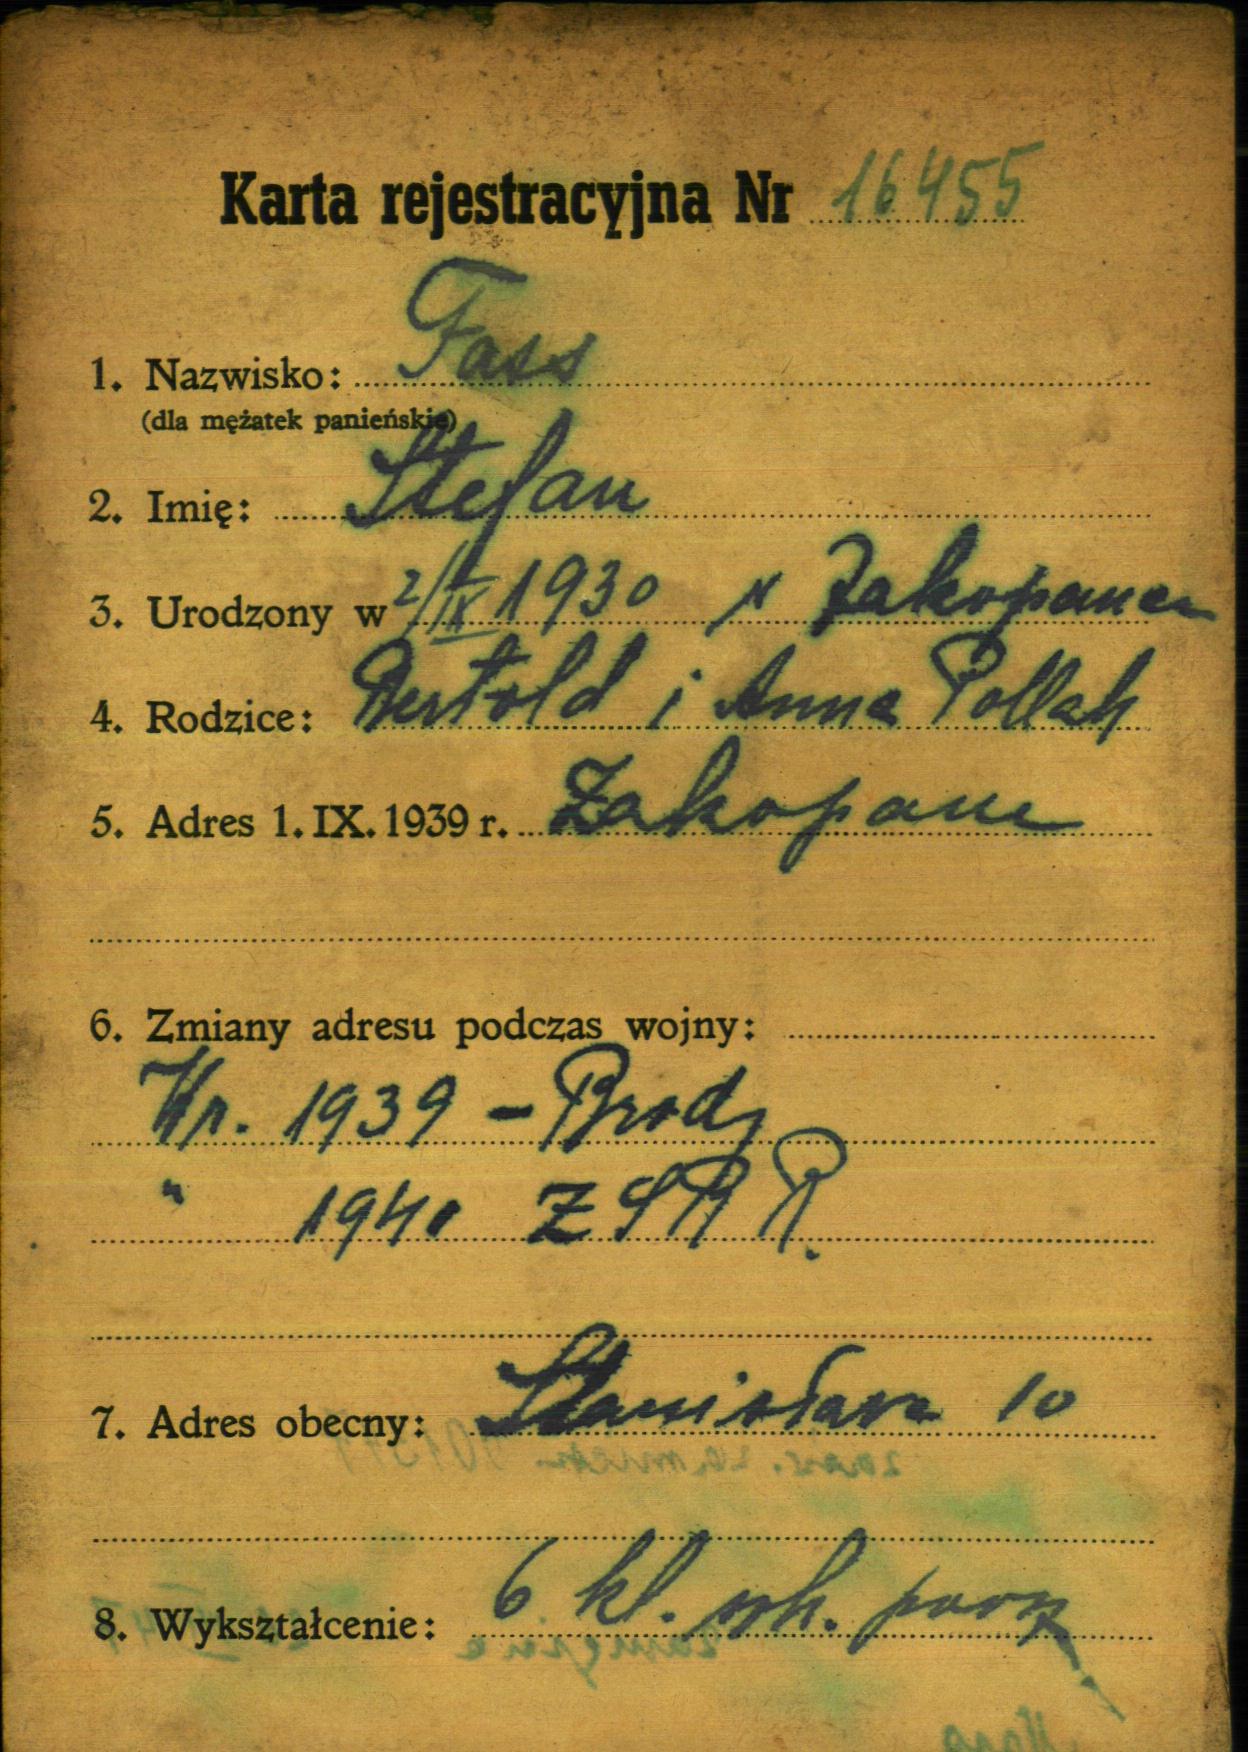 Karta rejestracyjna Nr 16455
1. Nazwisko: Fass
(dla mężatek panieńskie)
2. Imię: Stefan
3. Urodzony w 2/IX 1930 w Zakopanem
4. Rodzice: Bertold i Anna Pollak
5. Adres 1. IX. 1939 r. Zakopane
6. Zmiany adresu podczas wojny:
Wr. 1939 - Brody
" 1940 ZSRR.
7. Adres obecny: Stanisława 10
8. Wykształcenie: 6 kl. szk. powsz.